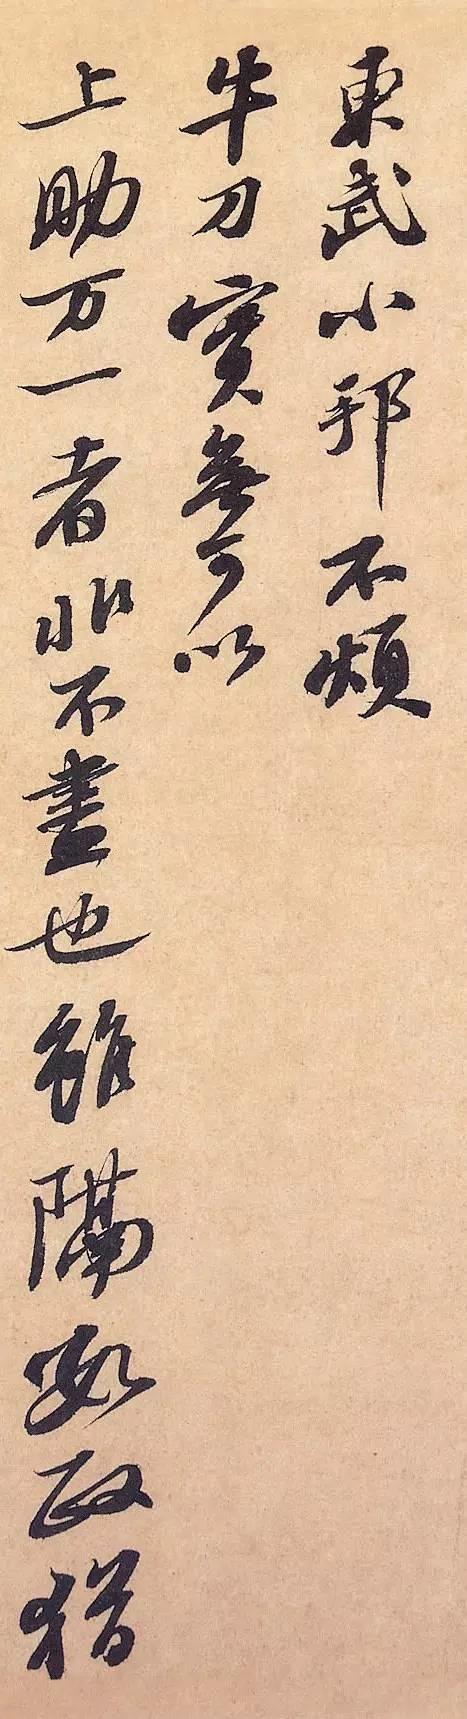 東武小邦不煩
牛刀實無可以
上助万一者非不盡也雖隔數政猶